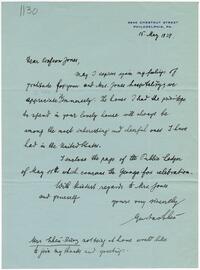 1130
3840 CHESTNUT STREET
PHILADELPHIA, PA.
15 May 1929
Dear Professor Jones,
May I express again my feelings of
gratitude for your and Mrs. Jones hospitality; we
appreciate immensely. The hours I had the privilege
to spend in your lovely house will always be
among the most interesting and cheerful ones I have
had in the United States.
I enclose the page of the Public Ledger
of May 15th which concerns the George fox celebration.
With kindest regards to Mrs Jones
and yourself
yours very sincerely
Mrs. not being at home would like
to join my thanks and greetings.